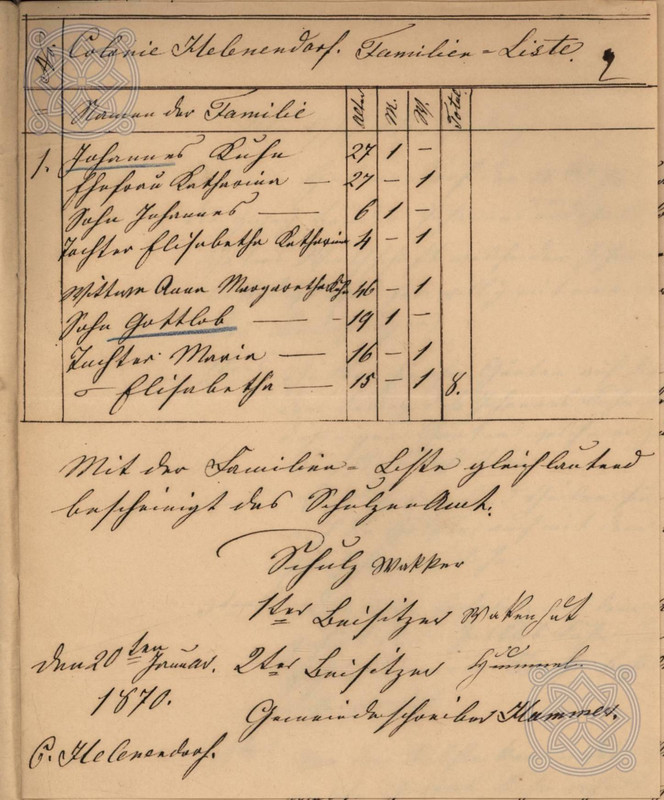 No. Colonie Helenendorf. Familien=Liste. 2
Namen der Familie Alter M. W. Total
1. Johannes Kuhn 27 1 –
Ehefrau Katharina — 27 – 1
Sohn Johannes — 6 1 –
Tochter Elisabetha Katharina 4 – 1
Wittwe Anna Margaretha Kuhn 46 – 1
Sohn Gottlob — 19 1 –
Tochter Maria — 16 – 1
" Elisabetha — 15 – 1 8.
Mit der Familien=Liste gleichlautend
bescheinigt das Schulzenamt.
Schulz Wakker
1ter Beisitzer Wakenhut
den 20ten Januar. 2ter Beisitzer Hummel
1870. Gemeindeschreiber Hammer.
C. Helenendorf.